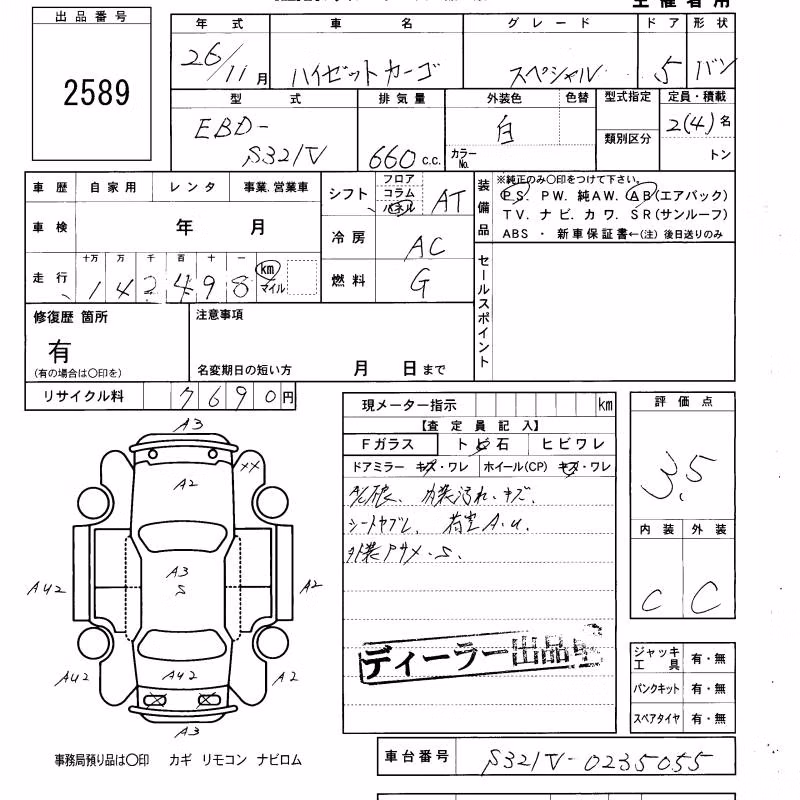 出品番号
2589
年式 車名 グレード ドア 形状
26/11月 ハイゼットカーゴ スペシャル 5 バン
型式 排気量 外装色 色替 型式指定 定員・積載
EBD-
S321V 660 c.c. 白 カラーNo. 類別区分 2(4)名
トン
車歴 自家用 レンタ 事業、営業車
車検 年 月
走行 十万 万 千 百 十 一
142498 km マイル
シフト フロア コラム パネル AT
冷房 AC
燃料 G
装備品
※純正のみ○印をつけて下さい。
PS. PW. 純AW. AB(エアバック)
TV. ナビ. カワ. SR(サンルーフ)
ABS ・ 新車保証書←(注) 後日送りのみ
セールスポイント
修復歴 箇所
有
(有の場合は○印を)
注意事項
名変期日の短い方 月 日まで
リサイクル料 7690円
現メーター指示 km
【査定員記入】
Fガラス トビ石 ヒビワレ
ドアミラー キズ・ワレ ホイール(CP) キズ・ワレ
内装汚れ、キズ、
シートヤブレ、荷室A.U.
外装アサメ・S、
ディーラー出品
評価点
3.5
内装 外装
C C
ジャッキ工具 有・無
パンクキット 有・無
スペアタイヤ 有・無
A3
XX
A2
A3
S
AU2 A2
AU2 AU2 A2
A3
事務局預り品は○印 カギ リモコン ナビロム
車台番号 S321V-0235055